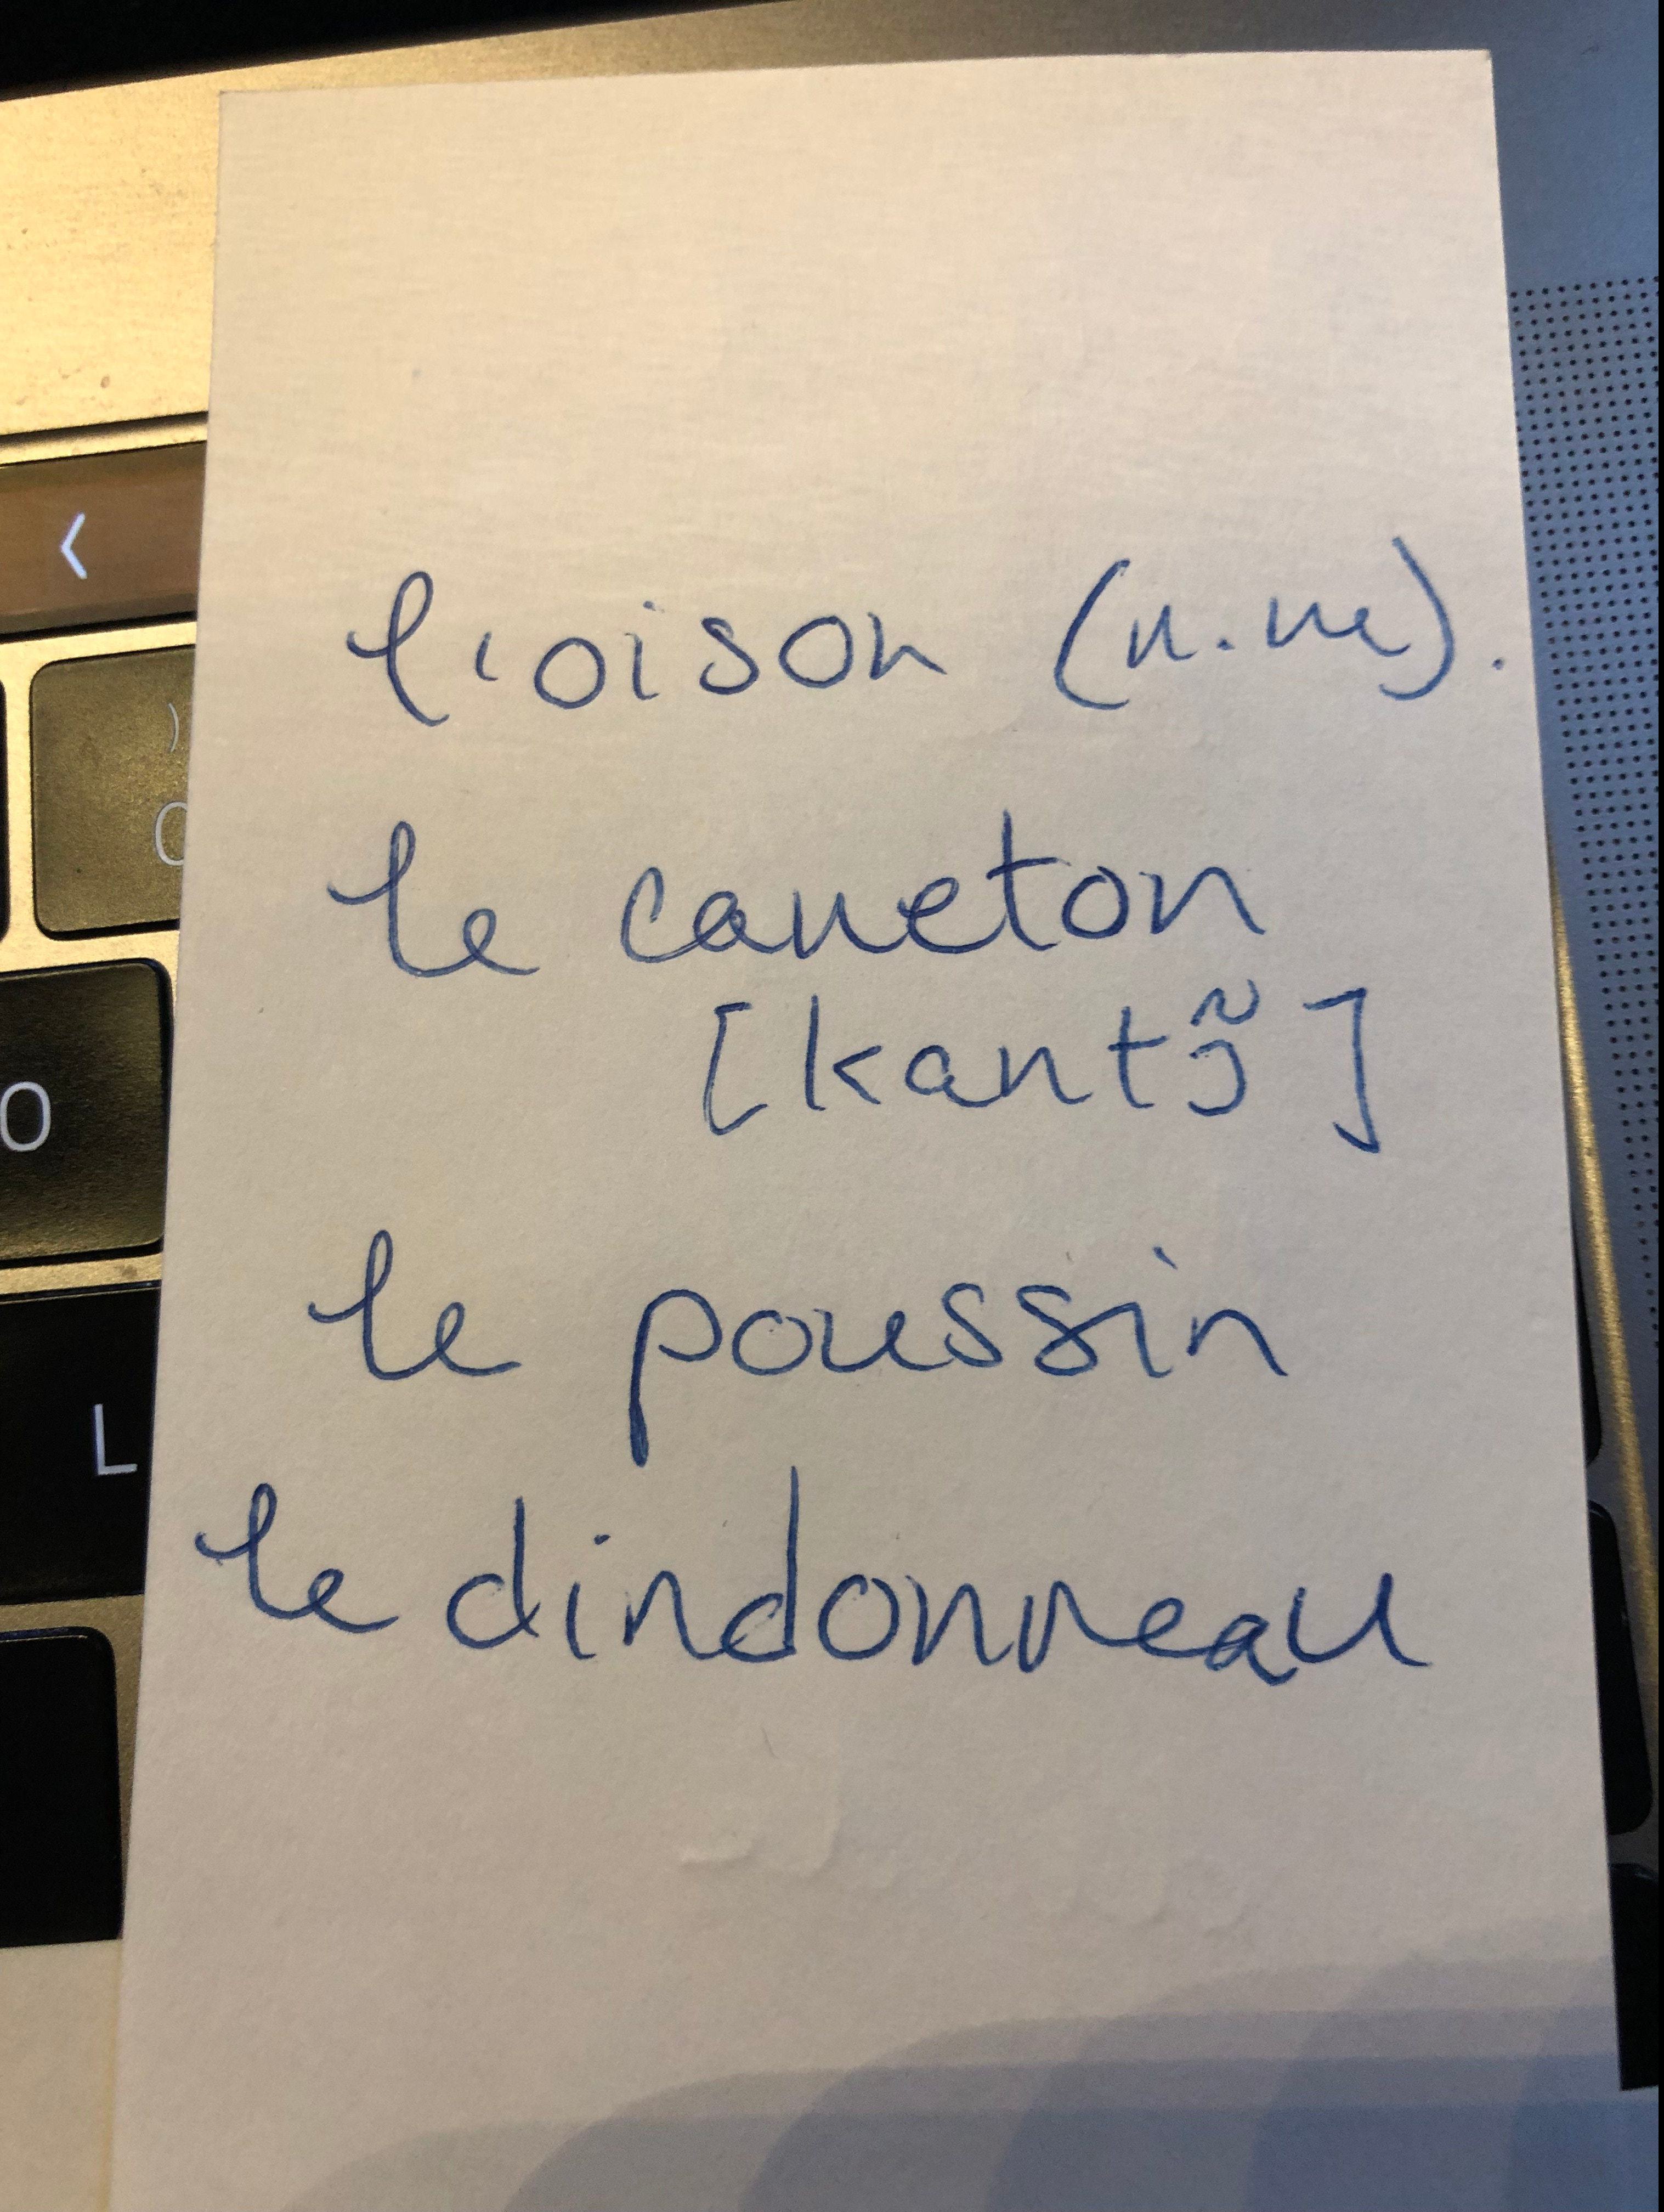 <
)
0
O
L
l'oison (n.m).
le caneton
[kantɔ̃]
le poussin
le dindonneau